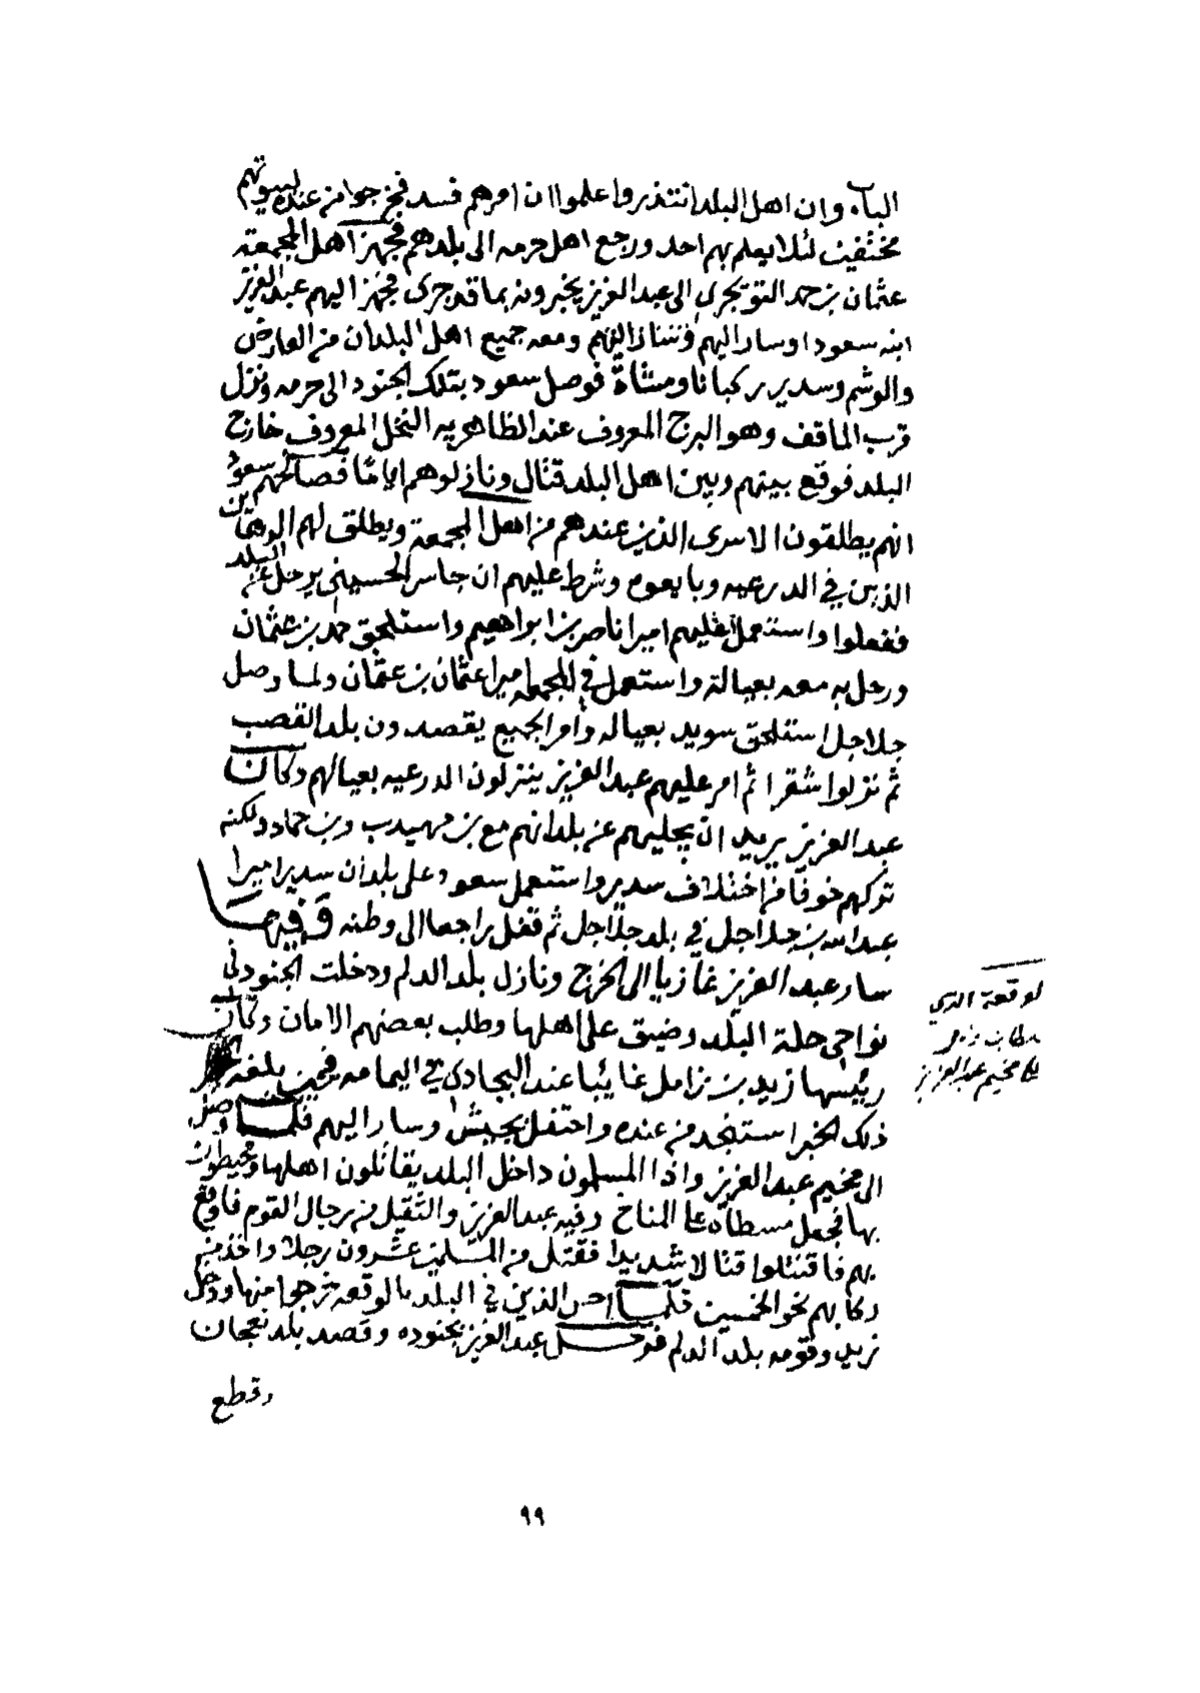 الباب وان اهل البلد انتذروا علموا ان امرهم فسد فخرجوا من عنده لبيوتهم
مختفين لئلا يعلم بهم احد ورجع اهل حرمه الى بلدهم فجهز اهل المجمعة
عثمان بن حمد التويجري الى عبدالعزيز يخبرونه بما قد جرى فجهز اليهم عبدالعزيز
ابنه سعودا وسار اليهم ومعه جميع اهل البلدان من العارض
والوشم وسدير ركبانا ومشاة فوصل سعود بتلك الجنود الى حرمه ونزل
قرب الماقف وهو البرج المعروف عند الظاهريه النخل المعروف خارج
البلد فوقع بينهم وبين اهل البلد قتال ونازلوهم اياما فصالحهم سعود
انهم يطلقون الاسرى الذين عندهم من اهل المجمعة ويطلق لهم الرهاين
الذين في الدرعيه وبايعوه وشرط عليهم ان جاسر الحسيني يرحل عن البلد
ففعلوا واستعمل عليهم اميرا ناصر بن ابراهيم واستلحق حمد بن عثمان
ورحل به معه بعياله واستعمل في المجمعه اميرا عثمان بن عثمان ولما وصل
جلاجل استلحق سويد بعياله وامر الجميع يقصدون بلد القصب
ثم نزلوا شقرا ثم امر عليهم عبدالعزيز ينزلون الدرعيه بعيالهم وكان
عبدالعزيز يريد ان يجليهم عن بلدانهم مع بن مهيدب وبن حماد ولكنه
تركهم خوفا من اختلاف سدير واستعمل سعود على بلدان سدير اميرا
عبدالله بن جلاجل في بلد جلاجل ثم قفل راجعا الى وطنه وفيها
سار عبدالعزيز غازيا الى الخرج ونازل بلد الدلم ودخلت الجنود في
نواحي حلة البلد وضيق على اهلها وطلب بعضهم الامان وكان
رئيسها زيد بن زامل غايبا عند البجادي في اليمامه فحين بلغه
ذلك الخبر استنجد من عنده واحتفل بجيش وسار اليهم فلما وصل
الى مخيم عبدالعزيز واذا المسلمون داخل البلد يقاتلون اهلها ومحيطون
بها فجعل مسطاه على المناخ وفيه عبدالعزيز والثقيل من رجال القوم فاوقع
بهم فاقتتلوا قتالا شديدا فقتل من المسلمين عشرون رجلا واخذ من
ركابهم نحو الخمسين فلما احس الذين في البلد بالوقعه خرجوا منها ودخل
زيد وقومه بلد الدلم فرحل عبدالعزيز بجنوده وقصد بلد نعجان
وقطع
لوقعة الذي
على مخيم عبدالعزيز
٩٩